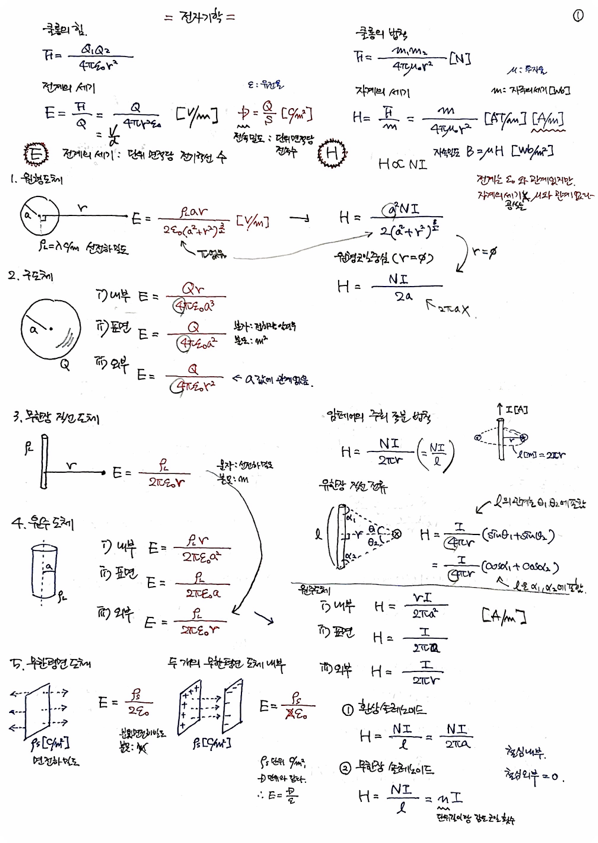 = 전자기학 =
①
-쿨롱의 힘.
F = Q₁Q₂ / 4πε₀r²
쿨롱의 법칙
F = m₁m₂ / 4πμ₀r² [N]
전계의 세기
ε : 유전율
E = F/Q = Q / 4πr²ε₀ [V/m]
= V/d
D = Q/S [C/m²]
전속밀도 : 단위면적당 전속수
μ : 투자율
자계의 세기
m : 자극의세기[Wb]
H = F/m = m / 4πμ₀r² = [AT/m] [A/m]
E 전계의 세기 : 단위 면적당 전기력선 수
H
자속밀도 B = μH [Wb/m²]
H ∝ NI
전계는 ε₀와 관계있지만
자계의 세기 μ와 관계없다
1. 원형도체
a
r
E = ρLar / 2ε₀(a²+r²)^(3/2) [V/m]
ρL = λ C/m 선전하밀도
→ H = a²NI / 2(a²+r²)^(3/2)
원형코일중심 (r=0)
r=0
H = NI / 2a
2πa X.
2. 구도체
a
Q
i) 내부 E = Qr / 4πε₀a³
ii) 표면 E = Q / 4πε₀a²
분모 : m²
iii) 외부 E = Q / 4πε₀r² ← a값에 관계없음.
3. 무한장 직선도체
ρL
r
E = ρL / 2πε₀r
분자 : 선전하밀도
분모 : m
암페어의 주회 적분 법칙
H = NI / 2πr (= NI / l)
I[A]
r
l[m] = 2πr
유한장 직선 전류
l α₁ r θ₁ θ₂ α₂
l의 관계는 θ₁ θ₂에 포함
H = I / 4πr (sinθ₁ + sinθ₂)
= I / 4πr (cosα₁ + cosα₂)
l은 α₁, α₂에 포함.
4. 원주 도체
a
ρL
i) 내부 E = ρLr / 2πε₀a²
ii) 표면 E = ρL / 2πε₀a
iii) 외부 E = ρL / 2πε₀r
원주도체
i) 내부 H = rI / 2πa² [A/m]
ii) 표면 H = I / 2πa
iii) 외부 H = I / 2πr
5. 무한평면 도체
ρs[C/m²]
면전하밀도
E = ρs / 2ε₀
두 개의 무한평면 도체 내부
ρs[C/m²]
E = ρs / ε₀
ρs 단위 C/m²,
D 단위와 같다.
∴ E = D/ε
① 환상솔레노이드
H = NI / l = NI / 2πa
철심내부.
철심외부 = 0.
② 무한장 솔레노이드
H = NI / l = nI
단위길이당 감도코일횟수